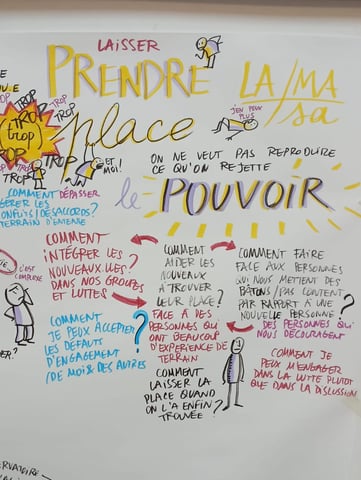 LAISSER
PRENDRE
LA/MA
/sa
place
J'EN PEUX
PLUS
TROP
TROP
TROP
TROP
TROP
trop!
TROP
TROP
ET
MOI!
ON NE VEUT PAS REPRODUIRE
CE QU'ON REJETTE
le POUVOIR
COMMENT DÉPASSER
GÉRER LES
CONFLITS/DÉSACCORDS?
TERRAIN D'ENTENTE
COMMENT
INTÉGRER LES
NOUVEAUX.LLES?
DANS NOS GROUPES
ET LUTTES
c'est
COMPLIQUÉ
COMMENT
JE PEUX ACCEPTER
LES DÉFAUTS
D'ENGAGEMENT
(DE MOI & DES AUTRES)
?
COMMENT
AIDER LES
NOUVEAUX
À TROUVER
LEUR PLACE?
FACE À DES
PERSONNES QUI
ONT BEAUCOUP
D'EXPÉRIENCE DE
TERRAIN
COMMENT
LAISSER LA
PLACE QUAND
ON L'A ENFIN
TROUVÉE
?
COMMENT FAIRE
FACE AUX PERSONNES
QUI NOUS METTENT DES
BÂTONS/PAS CONTENT
PAR RAPPORT À UNE
NOUVELLE PERSONNE?
DES PERSONNES QUI
NOUS DÉCOURAGENT
COMMENT JE
PEUX M'ENGAGER
DANS LA LUTTE PLUTÔT
QUE DANS LA DISCUSSION
?